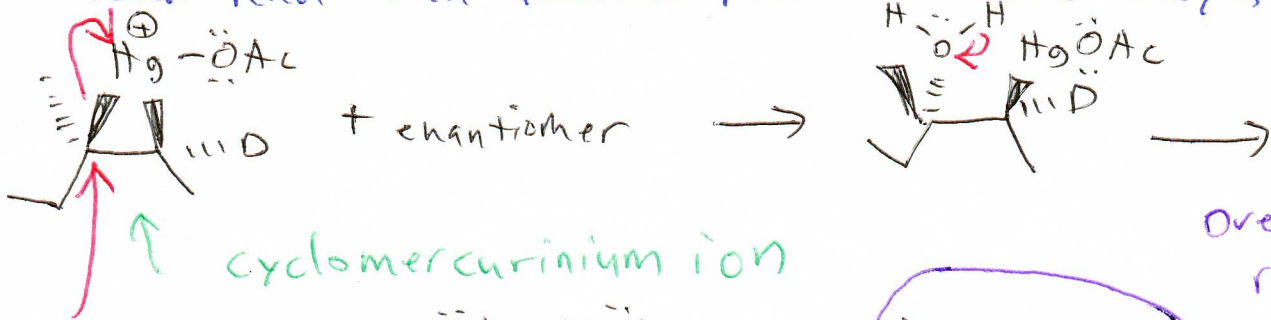 ⊕
Hg-ÖAc
D
+ enantiomer
H H
O HgÖAc
D
cyclomercurinium ion
Ove
r